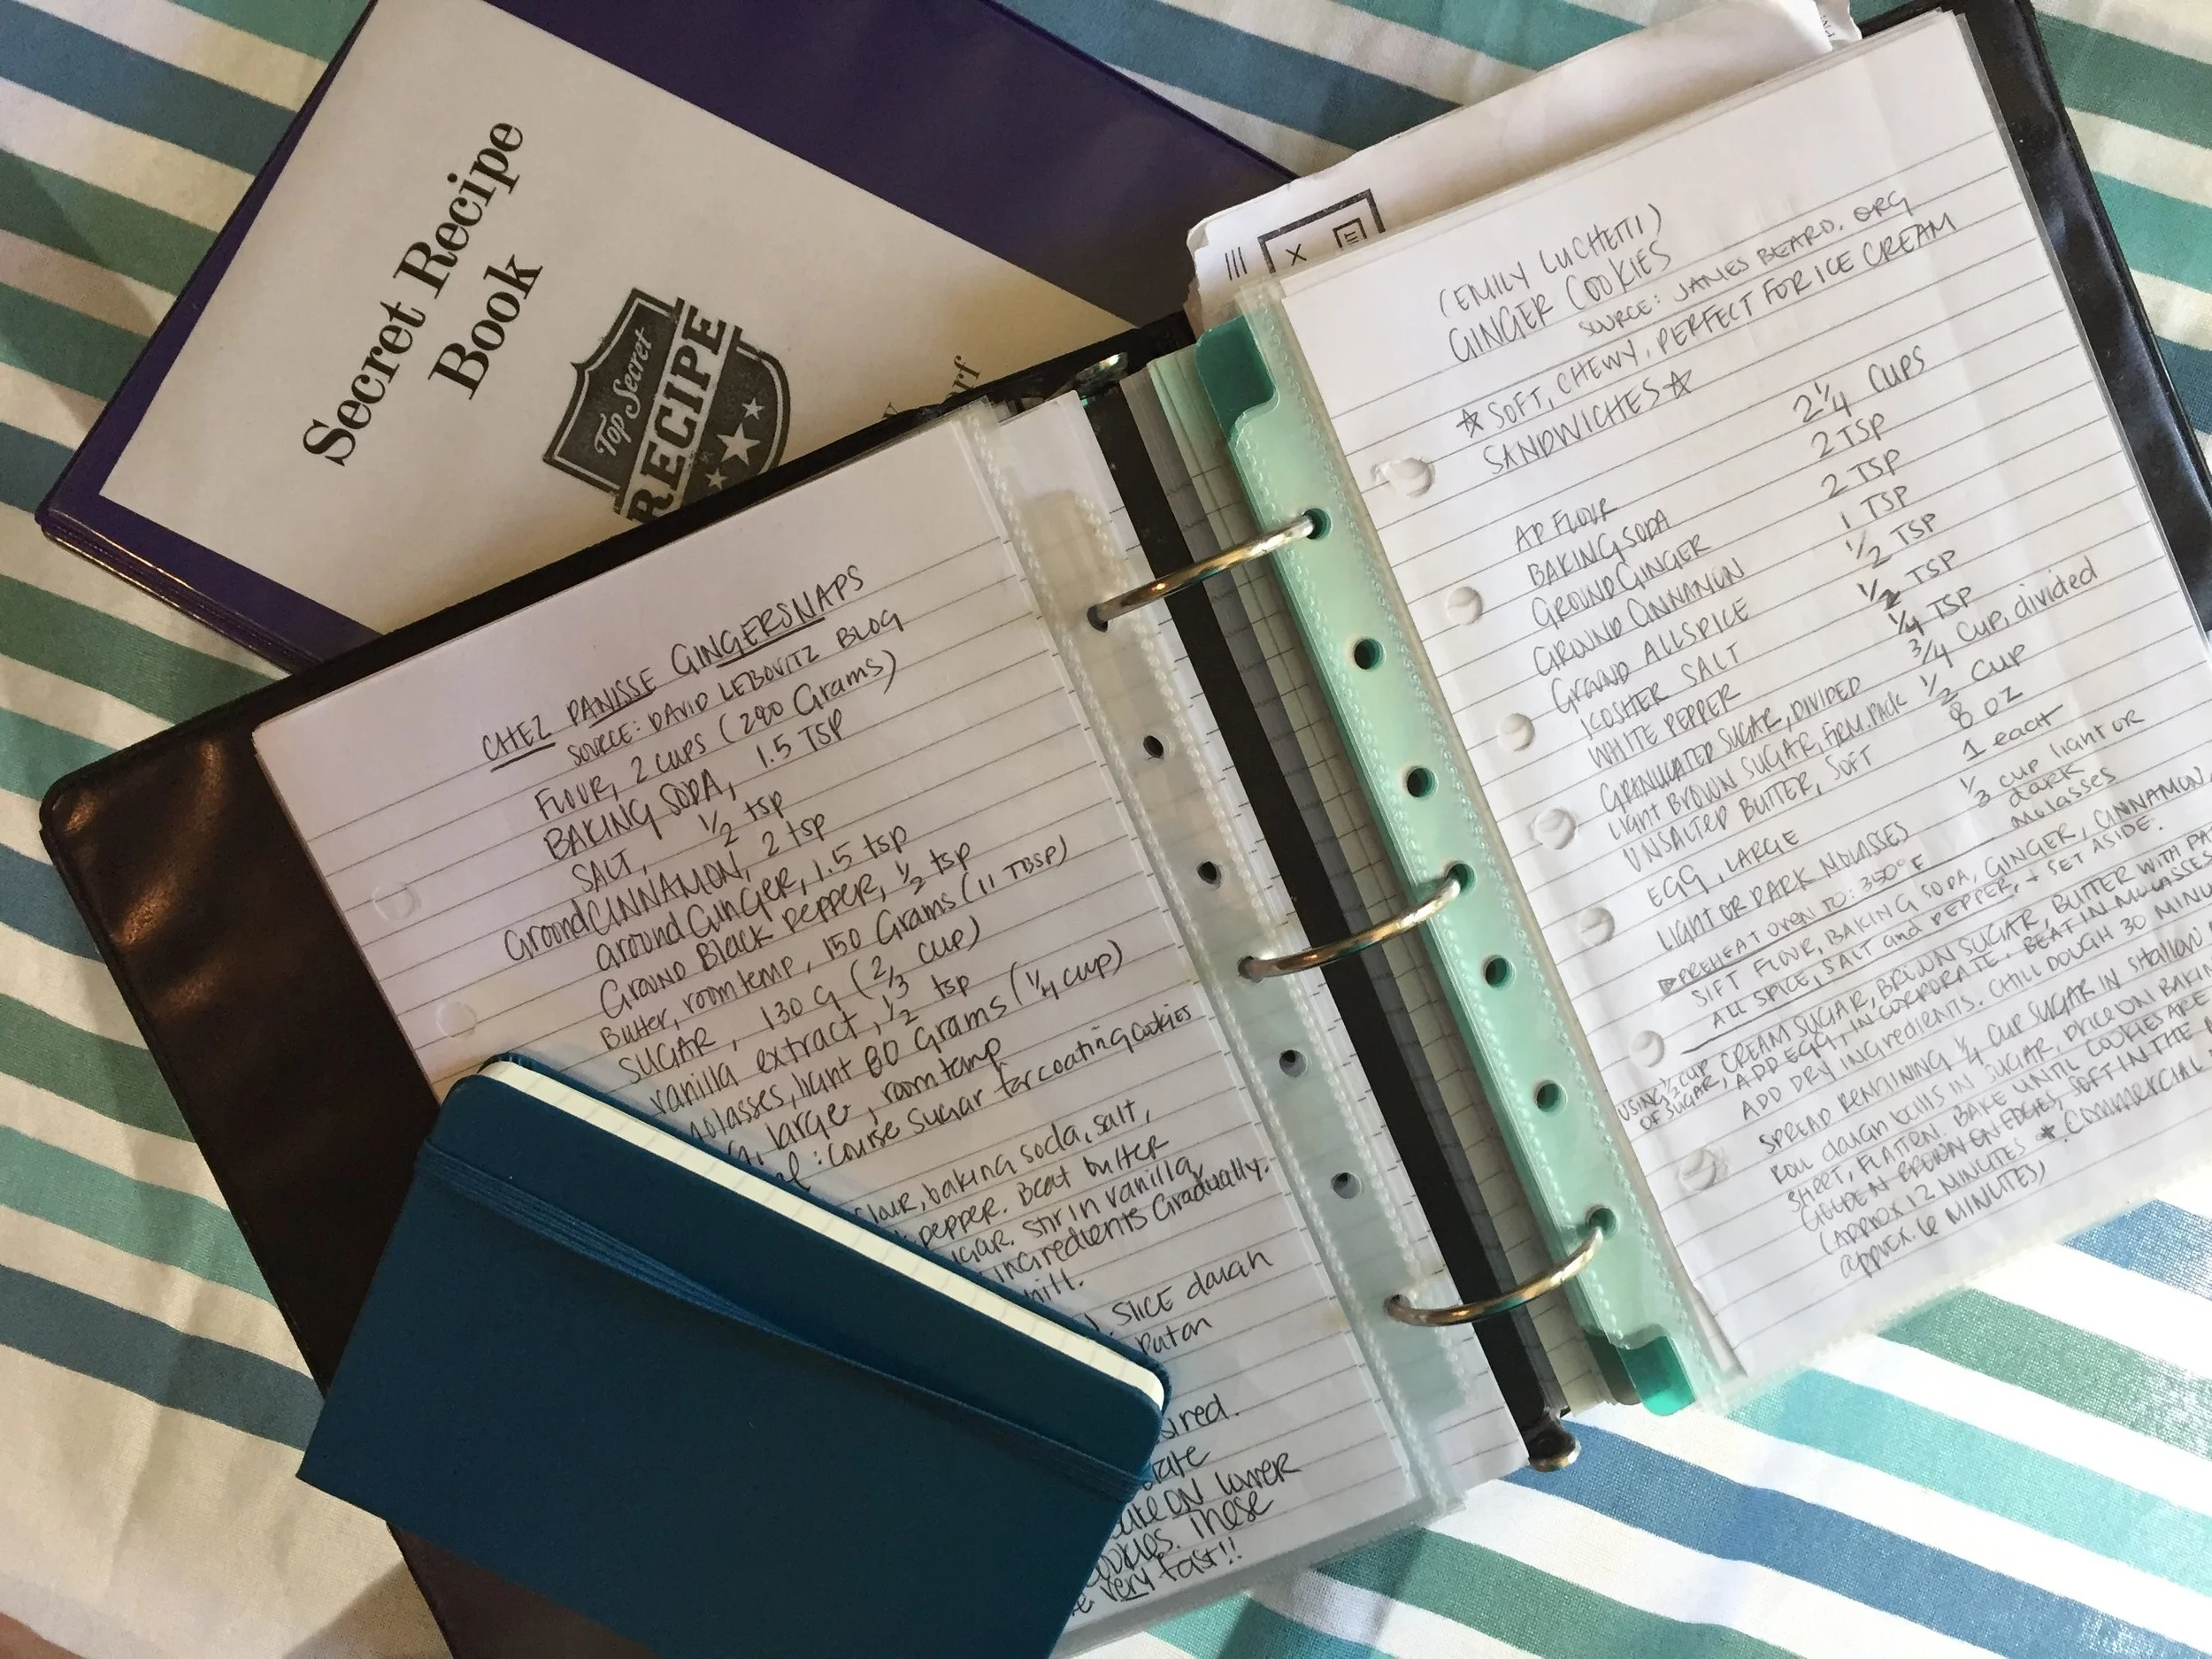 Secret Recipe
Book
Top Secret
RECIPE
CHEZ PANISSE GINGERSNAPS
SOURCE: DAVID LEBOVITZ BLOG
FLOUR, 2 CUPS (280 Grams)
BAKING SODA, 1.5 TSP
SALT, 1/2 tsp
Ground CINNAMON, 2 tsp
Ground GINGER, 1.5 tsp
Ground Black Pepper, 1/2 tsp
Butter, room temp, 150 Grams (11 TBSP)
SUGAR, 130 G (2/3 cup)
vanilla extract, 1/2 tsp
molasses, light 80 Grams (1/4 cup)
large, room temp
: course sugar for coating cookies
flour, baking soda, salt,
pepper. Beat butter
sugar. Stir in vanilla,
ingredients Gradually.
SLICE dough
put on
ON lower
cookies. These
very fast!!
(EMILY LUCHETTI)
GINGER COOKIES
SOURCE: JAMES BEARD.ORG
☆ SOFT, CHEWY, PERFECT FOR ICE CREAM
SANDWICHES ☆
AP FLOUR 2 1/4 CUPS
BAKING SODA 2 TSP
GROUND GINGER 2 TSP
GROUND CINNAMON 1 TSP
GROUND ALLSPICE 1/2 TSP
KOSHER SALT 1/2 TSP
WHITE PEPPER 1/4 TSP
GRANULATED SUGAR, DIVIDED 3/4 CUP, divided
light BROWN SUGAR, FIRM. PACK 1/2 CUP
UNSALTED BUTTER, SOFT 8 OZ
EGG, LARGE 1 each
LIGHT OR DARK MOLASSES 1/3 cup light or
dark
molasses
PREHEAT OVEN TO: 350°F
SIFT FLOUR, BAKING SODA, GINGER, CINNAMON,
ALL SPICE, SALT and PEPPER, + SET ASIDE.
USING 1/2 CUP CREAM SUGAR, BROWN SUGAR, BUTTER WITH
OF SUGAR, ADD EGG, INCORPORATE. BEAT IN MOLASSES
ADD DRY INGREDIENTS. CHILL DOUGH 30
SPREAD REMAINING 1/4 CUP SUGAR IN Shallow
Roll dough balls in SUGAR. place ON
SHEET, FLATTEN. BAKE UNTIL COOKIES ARE
GOLDEN BROWN ON EDGES, SOFT IN THE
(APPROX 12 MINUTES *. COMMERCIAL
approx. 6 MINUTES)